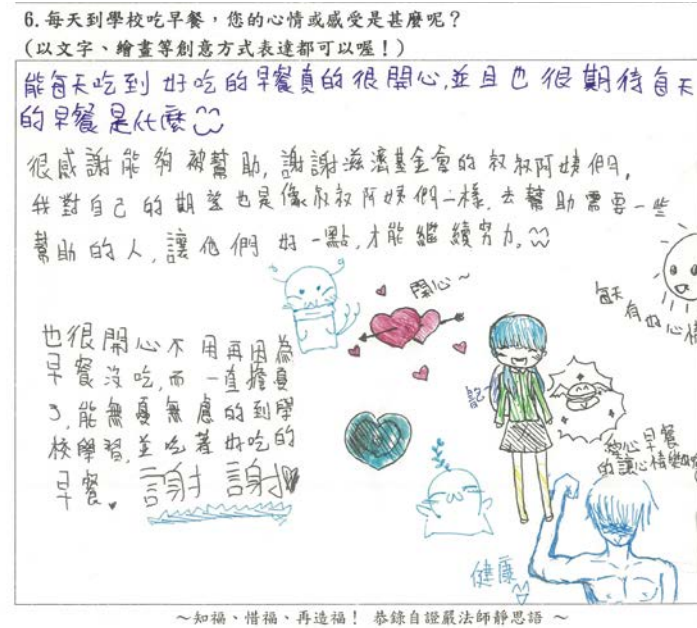 6.每天到學校吃早餐，您的心情或感受是甚麼呢？
(以文字、繪畫等創意方式表達都可以喔！)
能每天吃到好吃的早餐真的很開心,並且也很期待每天
的早餐是什麼
很感謝能夠被幫助,謝謝滋濟基金會的叔叔阿姨們,
我對自己的期望也是像叔叔阿姨們一樣,去幫助需要一些
幫助的人,讓他們好一點,才能繼續努力。
開心～
每天
有好心情
也很開心不用再因為
早餐沒吃,而一直擔憂
了,能無憂無慮的到學
校學習,並吃著好吃的
早餐。謝謝
愛心早餐
的讓心情變好
健康
～知福、惜福、再造福！ 恭錄自證嚴法師靜思語～